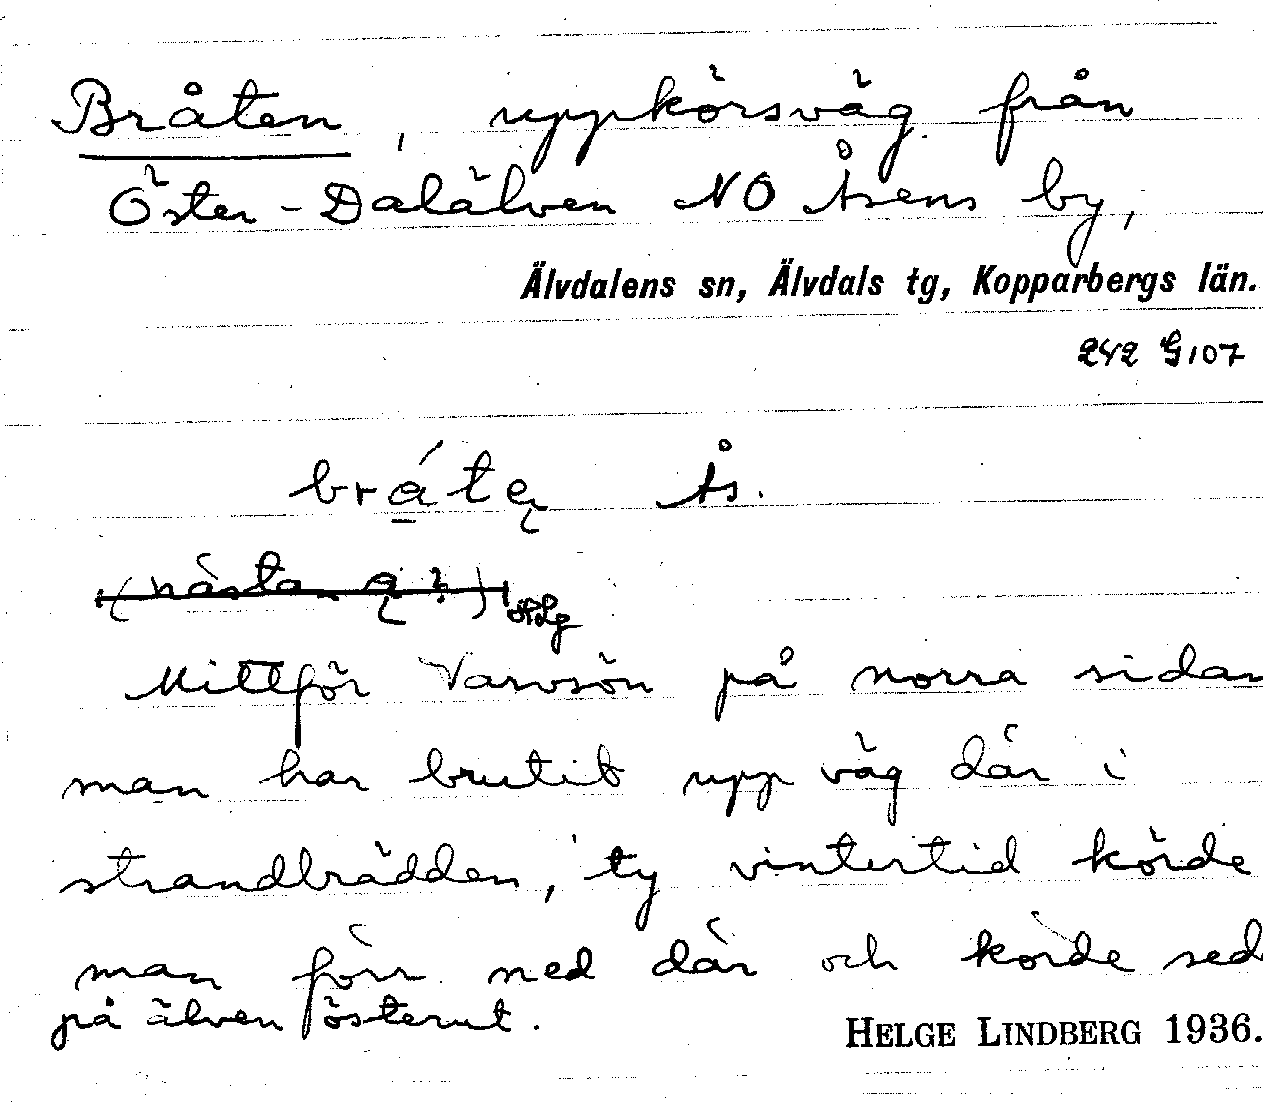 Bråten, uppkörsväg från
Öster-Dalälven NO Åsens by,
Älvdalens sn, Älvdals tg, Kopparbergs län.
242 G 107
brátę Ås.
(nästa ę?)
Mittför Vansön på norra sidan
man har brutit upp väg där i
strandbrädden, ty vintertid körde
man förr ned där och körde sed
på älven österut.
HELGE LINDBERG 1936.